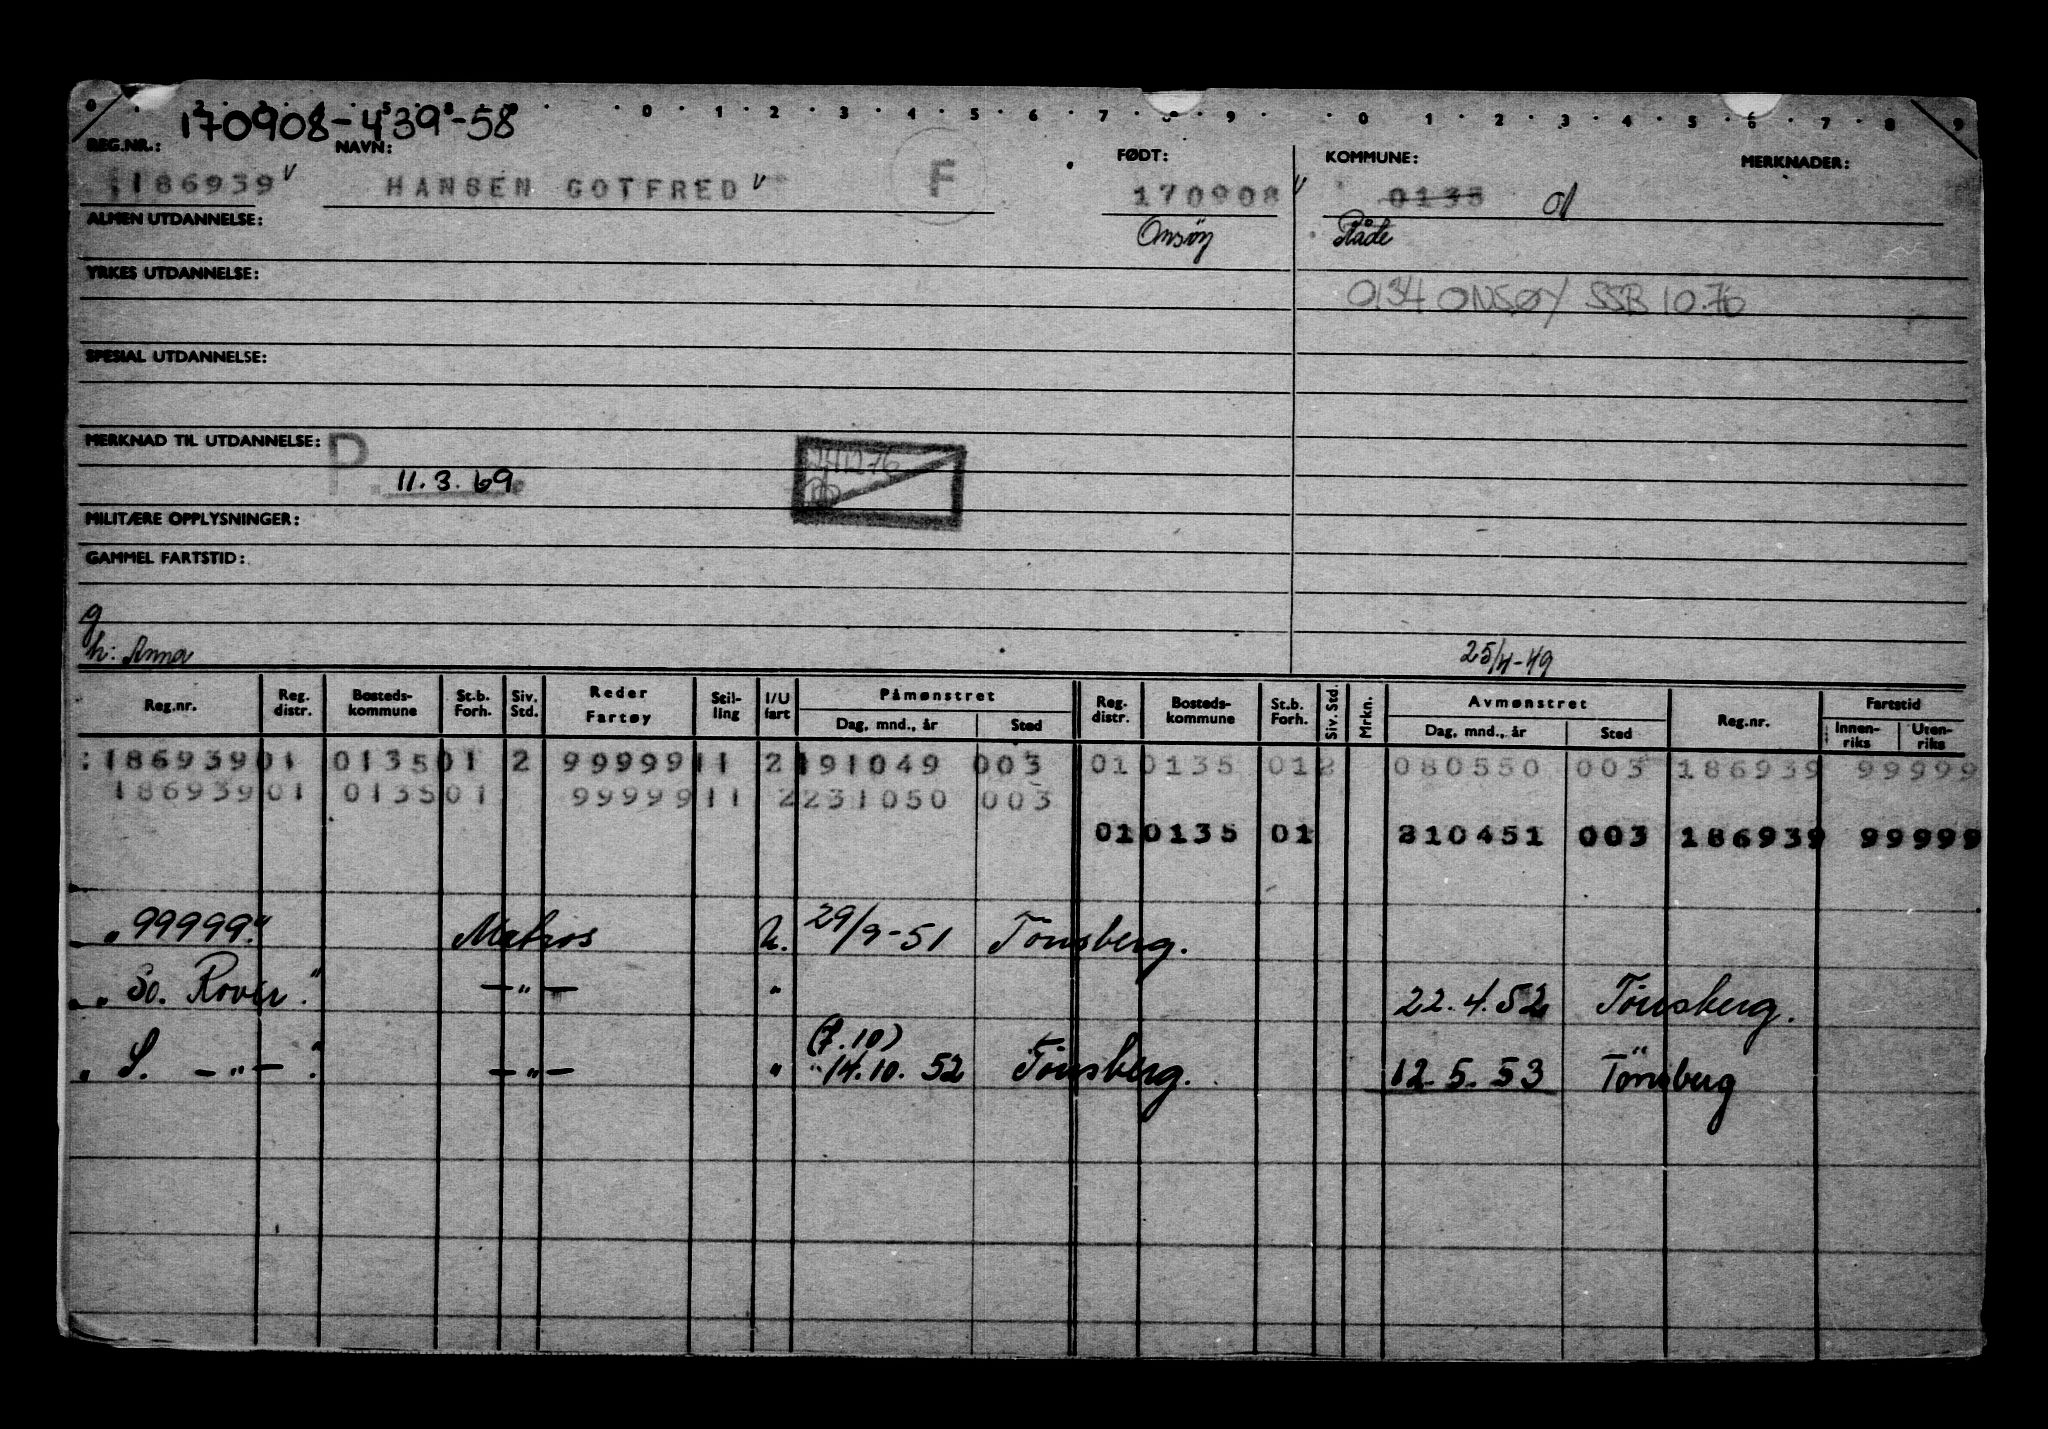 0 1 2 3 4 5 8 9 0 1 2 3 4 5 6 7 8 9 0 1 2 3 4 5 6 7 8 9
170908-439-58
REG.NR.: NAVN: FØDT: KOMMUNE: MERKNADER:
186939 v HANSEN GOTFRED v F 170908 v 0135
ALMEN UTDANNELSE: Onsöy Råde
YRKES UTDANNELSE:
0134 ONSØY SSB 10.76
SPESIAL UTDANNELSE:
MERKNAD TIL UTDANNELSE: P.
11.3.69
MILITÆRE OPPLYSNINGER:
GAMMEL FARTSTID:
g
h: Anna 25/4-49
Reg.nr. Reg. distr. Bosteds-kommune St.b. Forh. Siv. Std. Reder Fartøy Stil-ling I/U fart Påmønstret Reg. distr. Bosteds-kommune St.b. Forh. Siv. Std. Mrkn. Avmønstret Reg.nr. Fartstid
Dag, mnd., år Sted Dag, mnd., år Sted Innen-riks Uten-riks
186939 01 0135 01 2 99999 11 2 191049 003 01 0135 01 2 080550 003 186939 99999
186939 01 0135 01 99999 11 2 231050 003
01 0135 01 310451 003 186939 99999
„99999." Matros U. 29/9-51 Tönsberg.
„So. Rover." -"- " 22.4.52 Tönsberg.
(7.10)
„S. -"- ." -"- " 14.10.52 Tönsberg. 12.5.53 Tönsberg